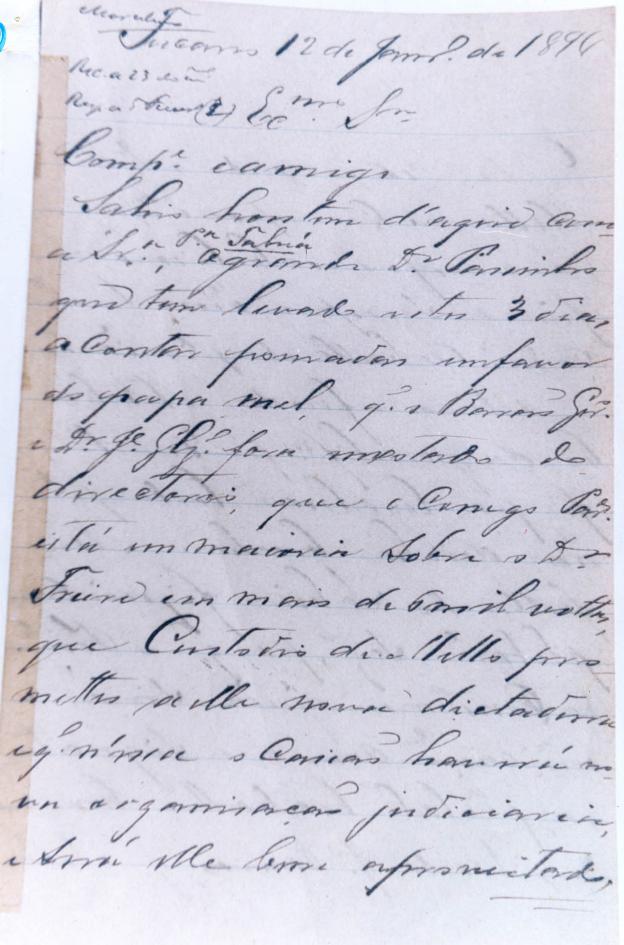 Tucano 12 de Janrº. de 1894
Rec. a 23 do m
Resp. a (2) Exmo. Snr.
Compe. e amigo
Sahio hontem d'aqui com
a Sra., pa Tabúa O grande Dr. Paranhos
que tem levado estes 3 dias
a contar pomadas em favor
do papa mel, q. o Barão
e Dr. Je. Glz. fora do
directorio, que o Conego
está em maioria sobre o Dr.
Freire em mais de 6 mil vottos,
que Custodio de Mello pro
metteo a elle nova dictadura
e q. n'essa occasião haverá no
va organisação judiciaria,
e será elle bem aproveitado,